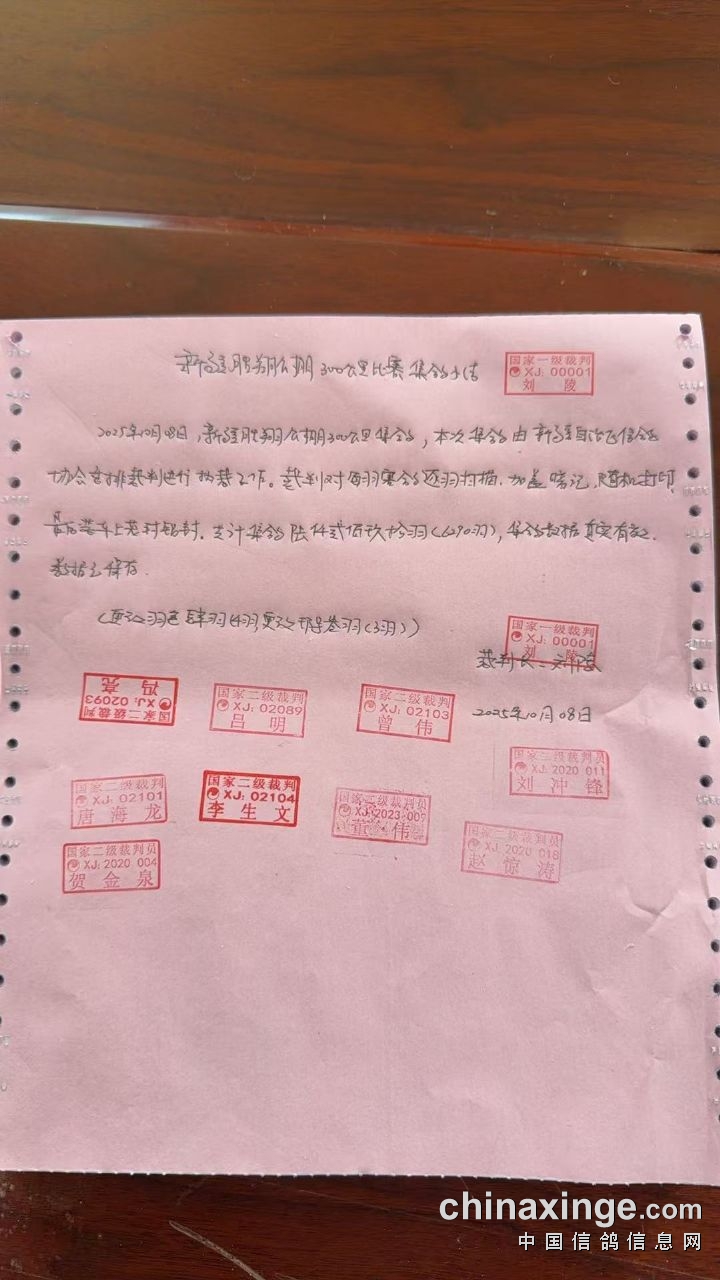 新疆胜翔公棚300公里比赛集鸽小结
国家一级裁判
XJ: 00001
刘 陵
2025年10月08日,新疆胜翔公棚300公里集鸽,本次集鸽由新疆自治区信鸽
协会安排裁判进行执裁工作。裁判对每羽赛鸽逐羽扫描,加盖暗记,随机打印,
最后装车上笼封铅封。共计集鸽陆仟贰佰玖拾羽(6290羽),集鸽数据真实有效.
数据已保存.
(更改羽色肆羽(4羽)更改环号叁羽(3羽))
国家一级裁判
XJ: 00001
刘 陵
裁判长:刘陵
2025年10月08日
国家二级裁判
XJ: 02093
冯 亮
国家二级裁判
XJ: 02089
吕 明
国家二级裁判
XJ: 02103
曾 伟
国家二级裁判员
XJ 2020 011
刘 冲 锋
国家二级裁判
XJ: 02101
唐 海 龙
国家二级裁判
XJ: 02104
李 生 文
国家二级裁判员
XJ 2023 007
伟
国家二级裁判员
XJ: 2020 004
贺 金 泉
国家二级裁判员
XJ 2020 018
赵 惊 涛
chinaxinge.com
中国信鸽信息网